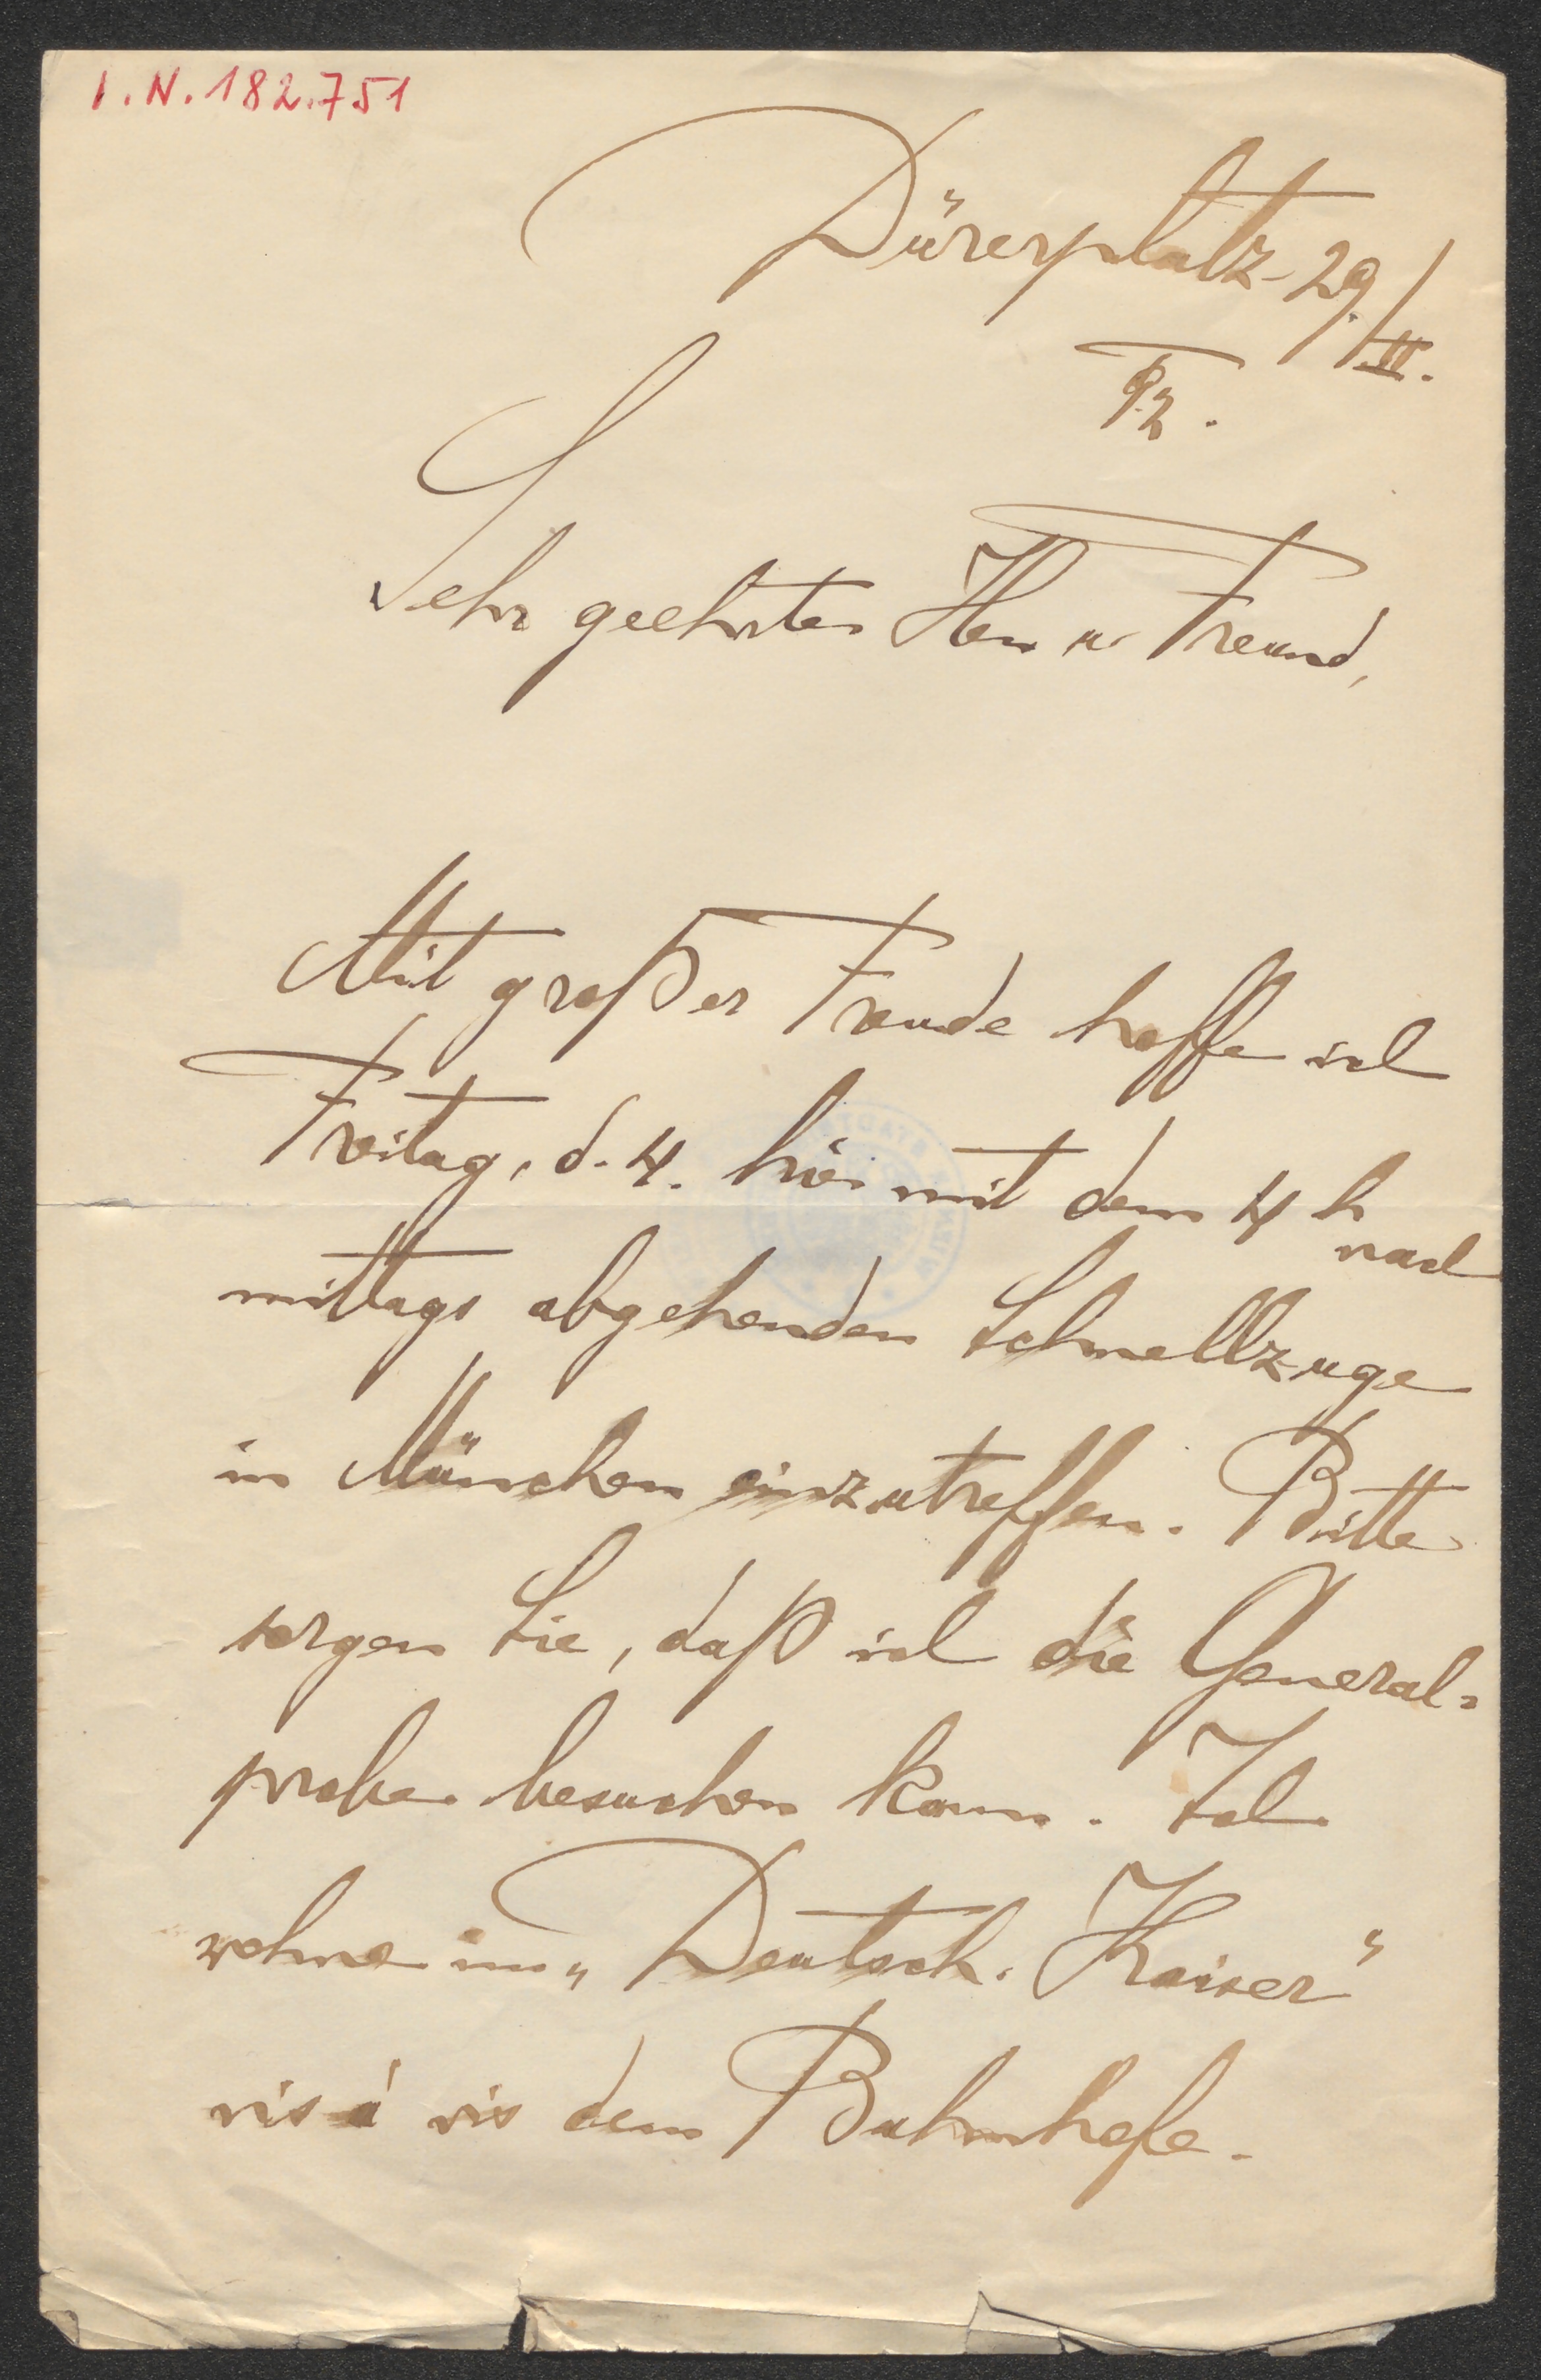 I.N.182.751
Dürerplatz 29./II.
92.
Sehr geehrter Herr u. Freund,
Mit großer Freude hoffe ich
Freitag, d. 4. hier mit dem 4 h nach
mittags abgehenden Schnellzuge
in München einzutreffen. Bitte
sorgen Sie, daß ich die General-
probe besuchen kann. Ich
wohne im „Deutsch. Kaiser"
vis à vis dem Bahnhofe.